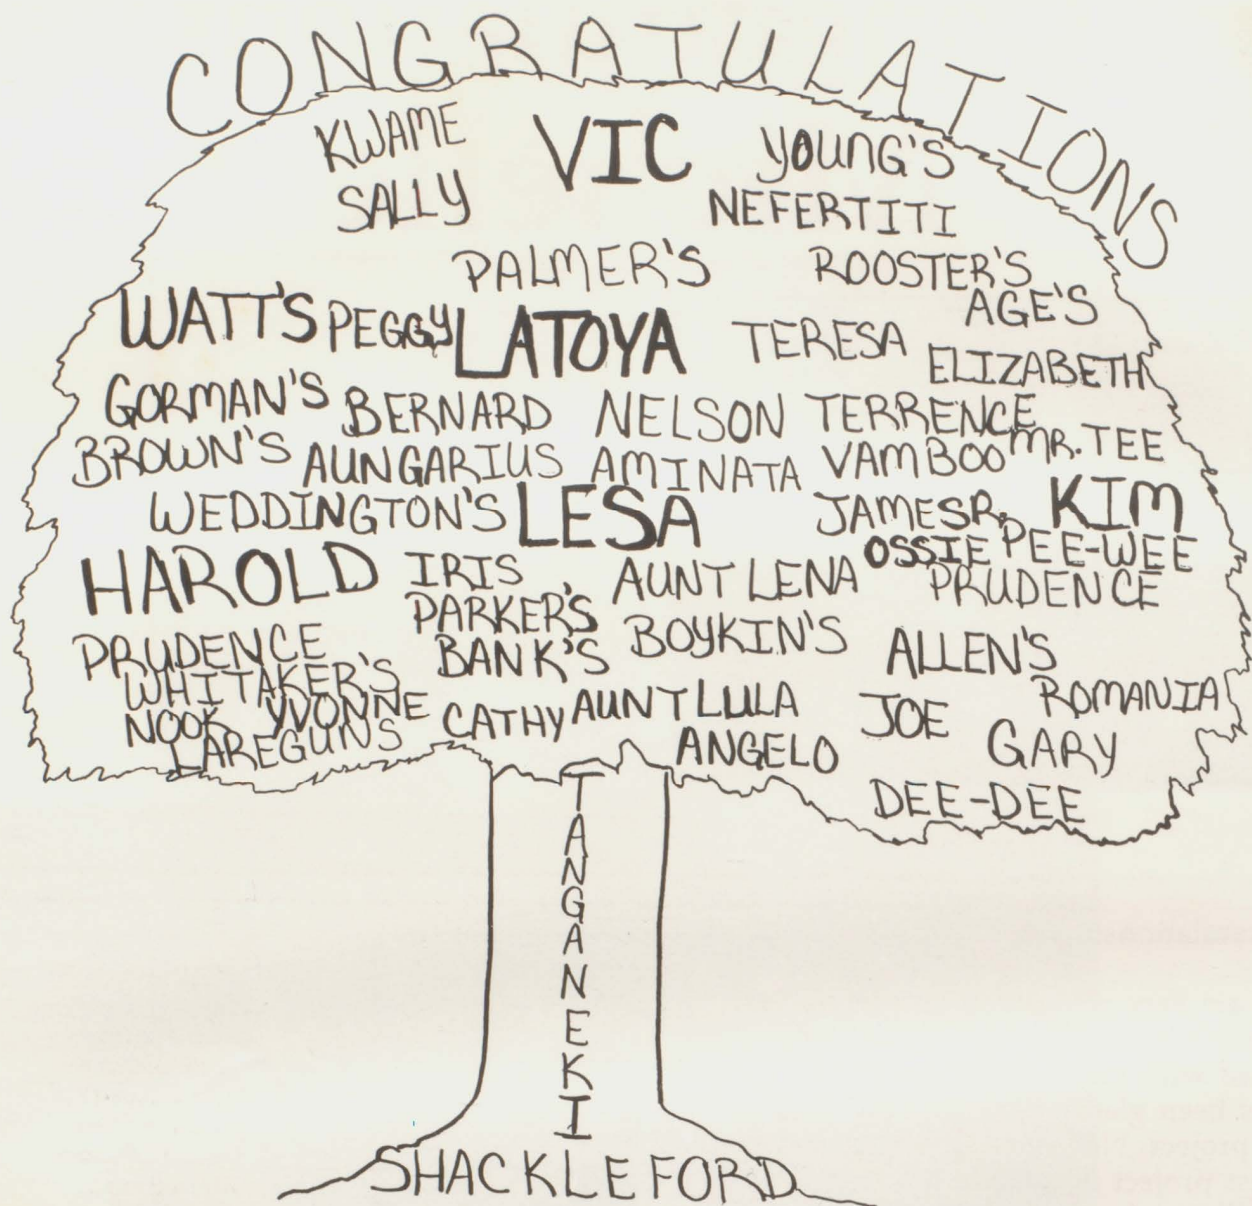 CONGRATULATIONS
KWAME VIC YOUNG'S
SALLY NEFERTITI
PALMER'S ROOSTER'S
WATT'S PEGGY LATOYA TERESA AGE'S
ELIZABETH
GORMAN'S BERNARD NELSON TERRENCE
BROWN'S AUNGARIUS AMINATA VAMBOO MR. TEE
WEDDINGTON'S LESA JAMES R. KIM
OSSIE PEE-WEE
HAROLD IRIS AUNT LENA PRUDENCE
PARKER'S
PRUDENCE BANK'S BOYKIN'S ALLEN'S
WHITAKER'S
NOOK YVONNE CATHY AUNT LULA JOE ROMANIA
LAREGUNS ANGELO GARY
DEE-DEE
TANGANEKI
SHACKLEFORD